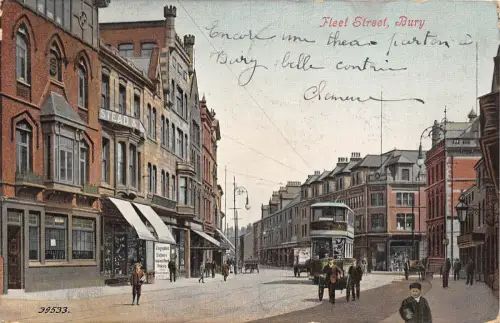 Fleet Street, Bury
Encore une
parton à
Bury
belle contrie
Clemence
STEAD
38533.